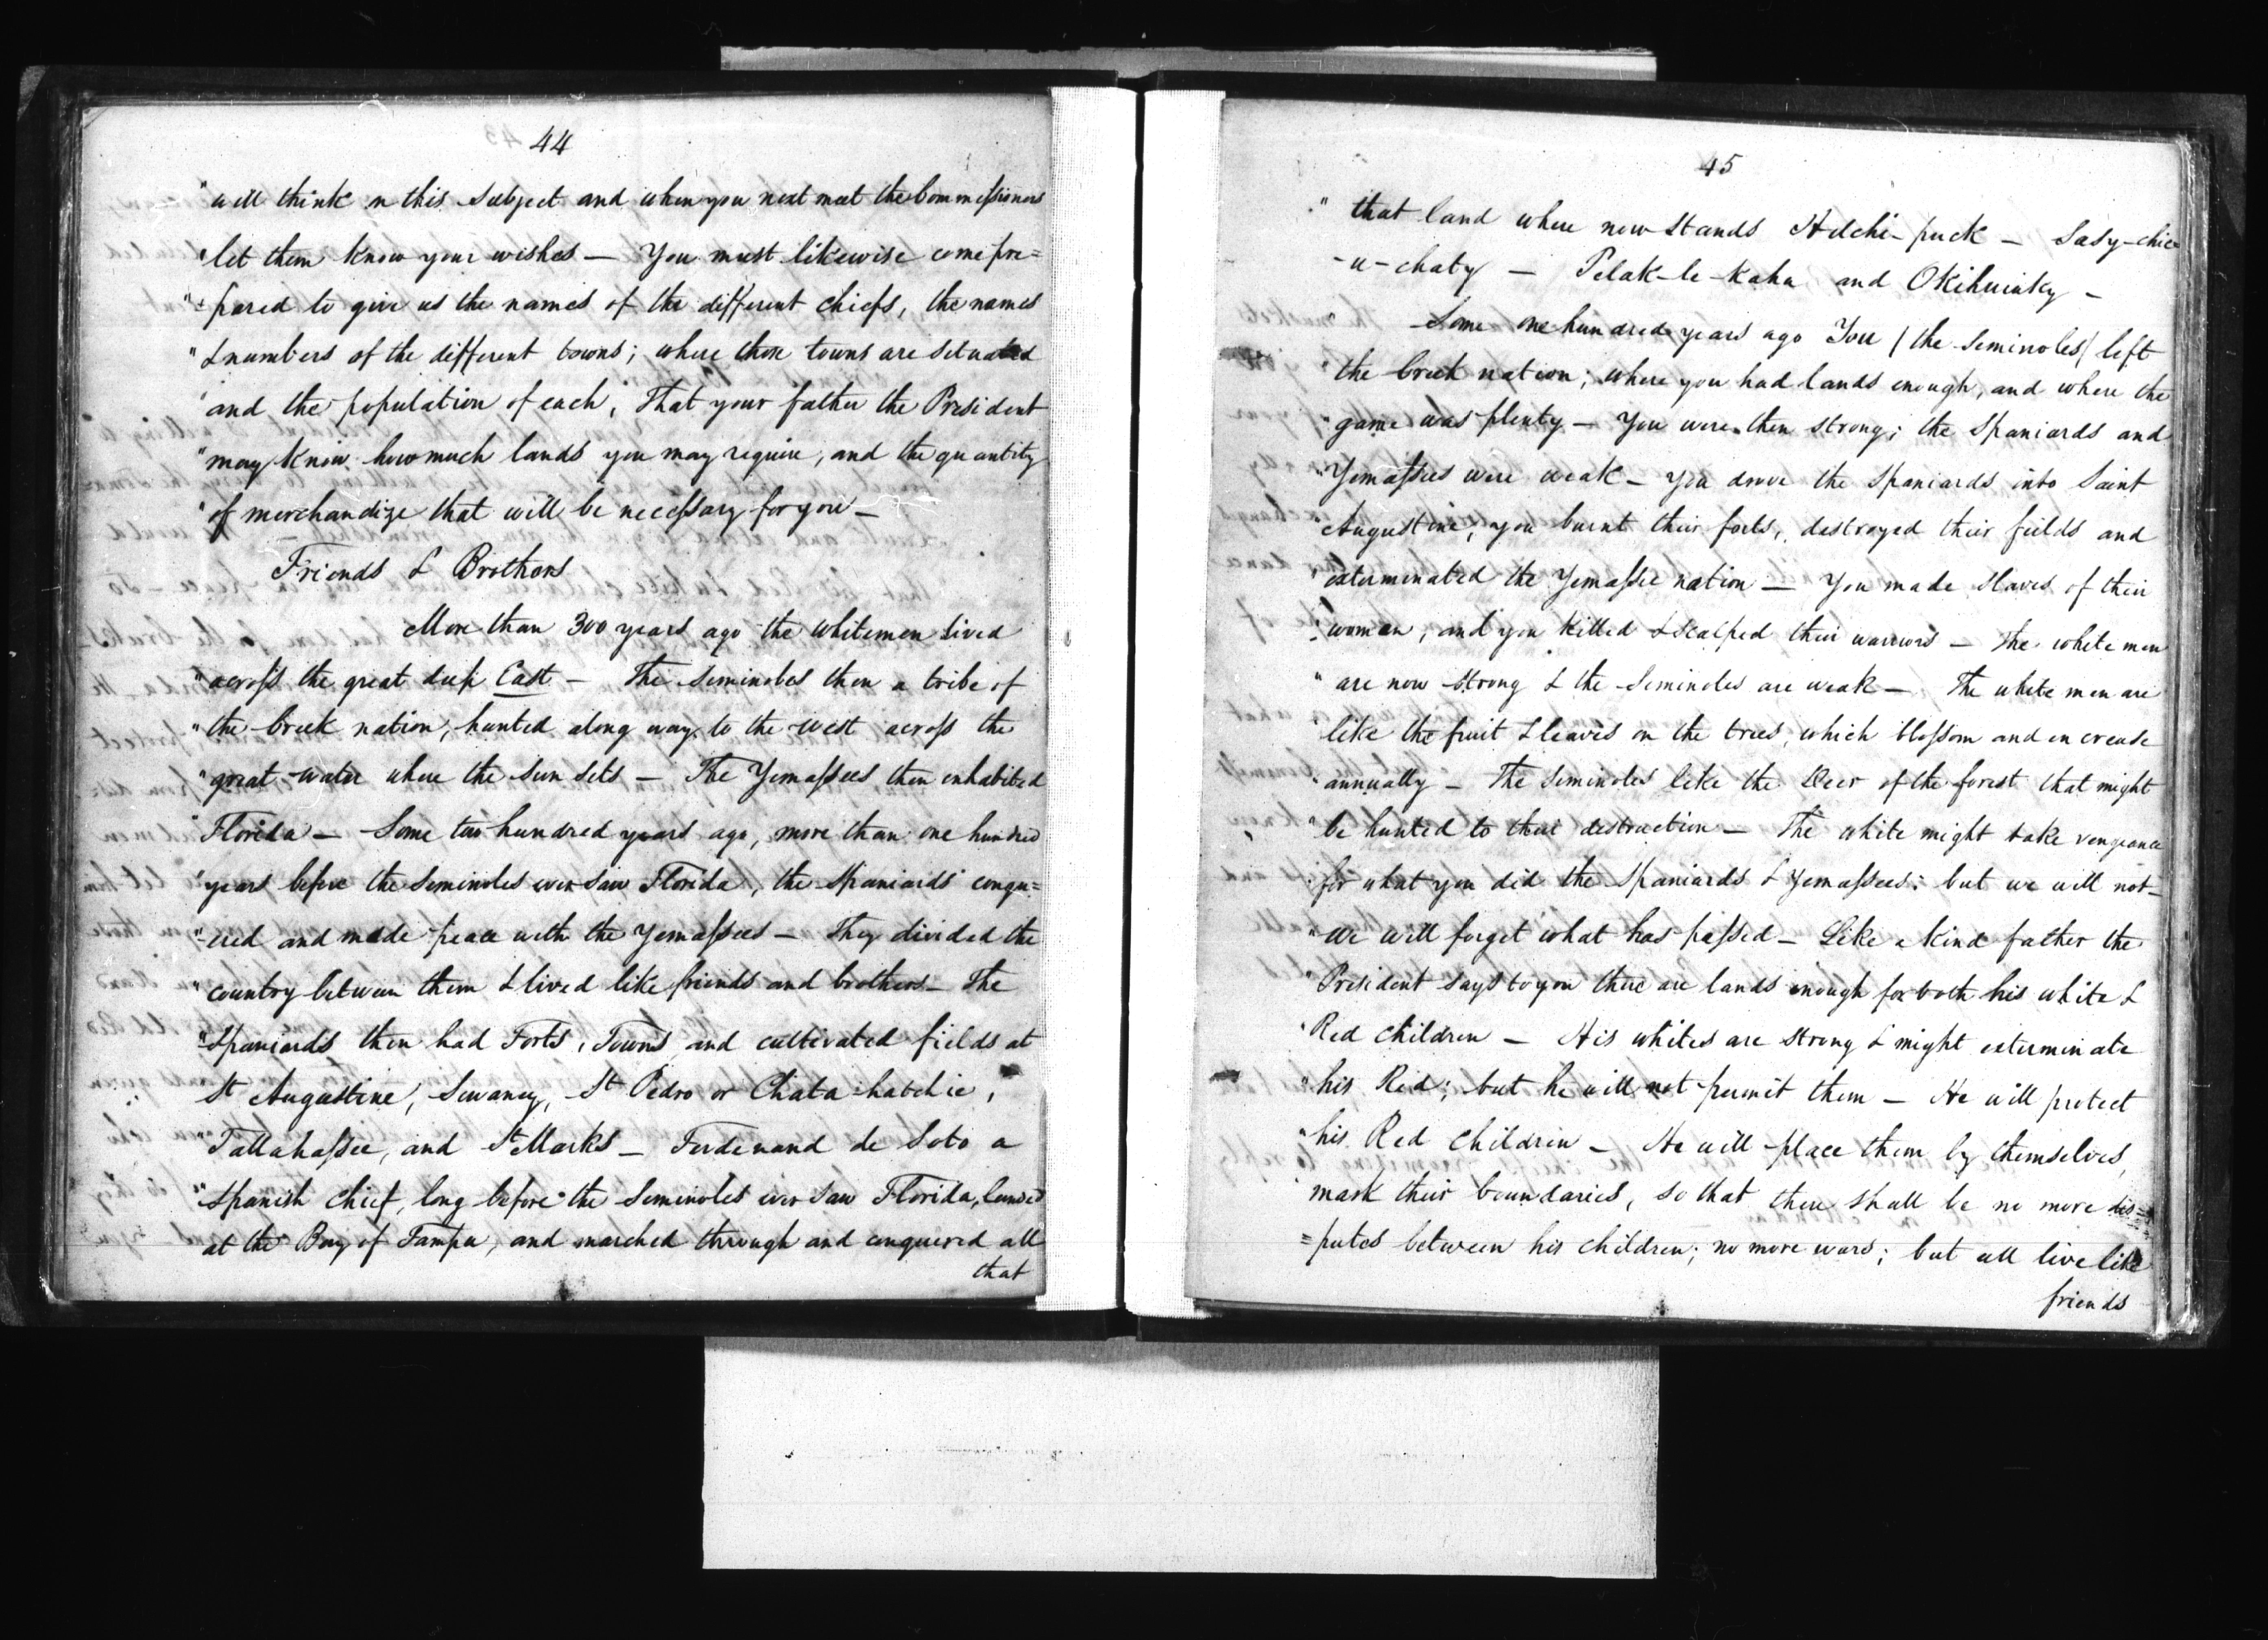 44
"will think on this Subject and when you next meet the Commissioners
"let them know your wishes — You must likewise come pre=
"=pared to give us the names of the different chiefs, the names
"& numbers of the different towns; where those towns are Situated
"and the population of each; That your father the President
"may know how much lands you may require, and the quantity
"of merchandize that will be necessary for you —
Friends & Brothers
More than 300 years ago the white men lived
"across the great deep East — The Seminoles then a tribe of
"the Creek nation, hunted along way to the west across the
"great-water where the Sun Sets — The Yemassees then inhabited
"Florida — Some two hundred years ago, more than one hundred
"years before the Seminoles ever Saw Florida, the Spaniards conqu=
"=ered and made peace with the Yemassees — They divided the
"country between them & lived like friends and brothers — The
"Spaniards then had Forts, Towns and cultivated fields at
St Augustine, Suwaney, St Pedro or Chata-hatchie,
"Tallahassee, and St Marks — Ferdenand de Soto a
"Spanish chief, long before the Seminoles ever Saw Florida, landed
at the Bay of Tampa, and marched through and conquered all
that
45
"that land where now Stands Hitchi-puck — Sasy-chic
-u-chaty — Pelak-le-kaha and Okihuinky —
" Some one hundred years ago You / the Seminoles / left
"the Creek nation; where you had lands enough, and where the
"game was plenty — You were then strong; the Spaniards and
"Yemassees were weak — you drove the Spaniards into Saint
"Augustine, you burnt their forts, destroyed their fields and
"exterminated the Yemassee nation — You made Slaves of their
"women, and you killed & Scalped their warriors — The white men
"are now Strong & the Seminoles are weak — The white men are
like the fruit & leaves on the trees, which blossom and increase
"annually — The Seminoles like the Deer of the forest that might
"be hunted to their destruction — The white might take vengeance
"for what you did the Spaniards & Yemassees: but we will not —
"We will forget what has passed — Like a kind father the
"President Says to you there are lands enough for both his white &
"Red children — His whites are Strong & might exterminate
"his Red; but he will not permit them — He will protect
"his Red children — He will place them by themselves,
"mark their boundaries, so that there shall be no more dis=
=putes between his children; no more wars; but all live like
friends